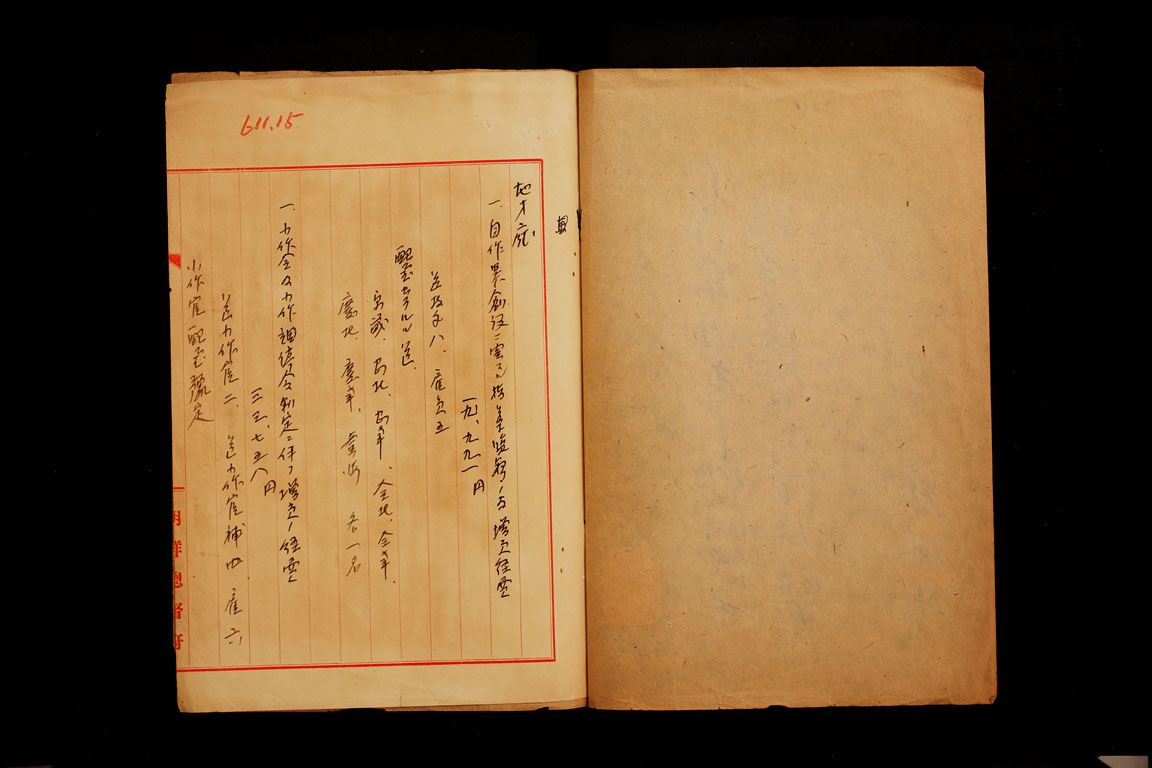 611.15
地方庁
一、自作農創設ニ要スル指導監督ノ為増員経費
一九、九九一円
道技手八、雇員五
配置セラルル道
京畿、忠北、忠南、全北、全南、
慶北、慶南、黄海 各一名
一、小作令及小作調停令制定ニ伴フ増員ノ経費
三三、七五八円
道小作官二、道小作官補四 雇六
小作官配置豫定
朝鮮總督府